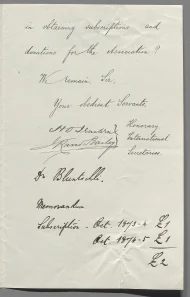 in obtaining subscriptions and
donations for the association?
We remain Sir,
Your obedient Servants
Honorary
International
Secretaries.
Dr Bluntschli.
Memorandum
Subscription - Oct. 1873-4 £1
Oct. 1874-5 £1
£2